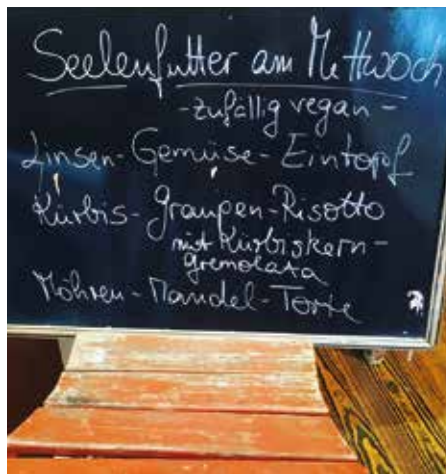 Seelenfutter am Mittwoch
- zufällig vegan -
Linsen-Gemüse-Eintopf
Kürbis-Graupen-Risotto
mit Kürbiskern-
gremolata
Möhren-Mandel-Torte